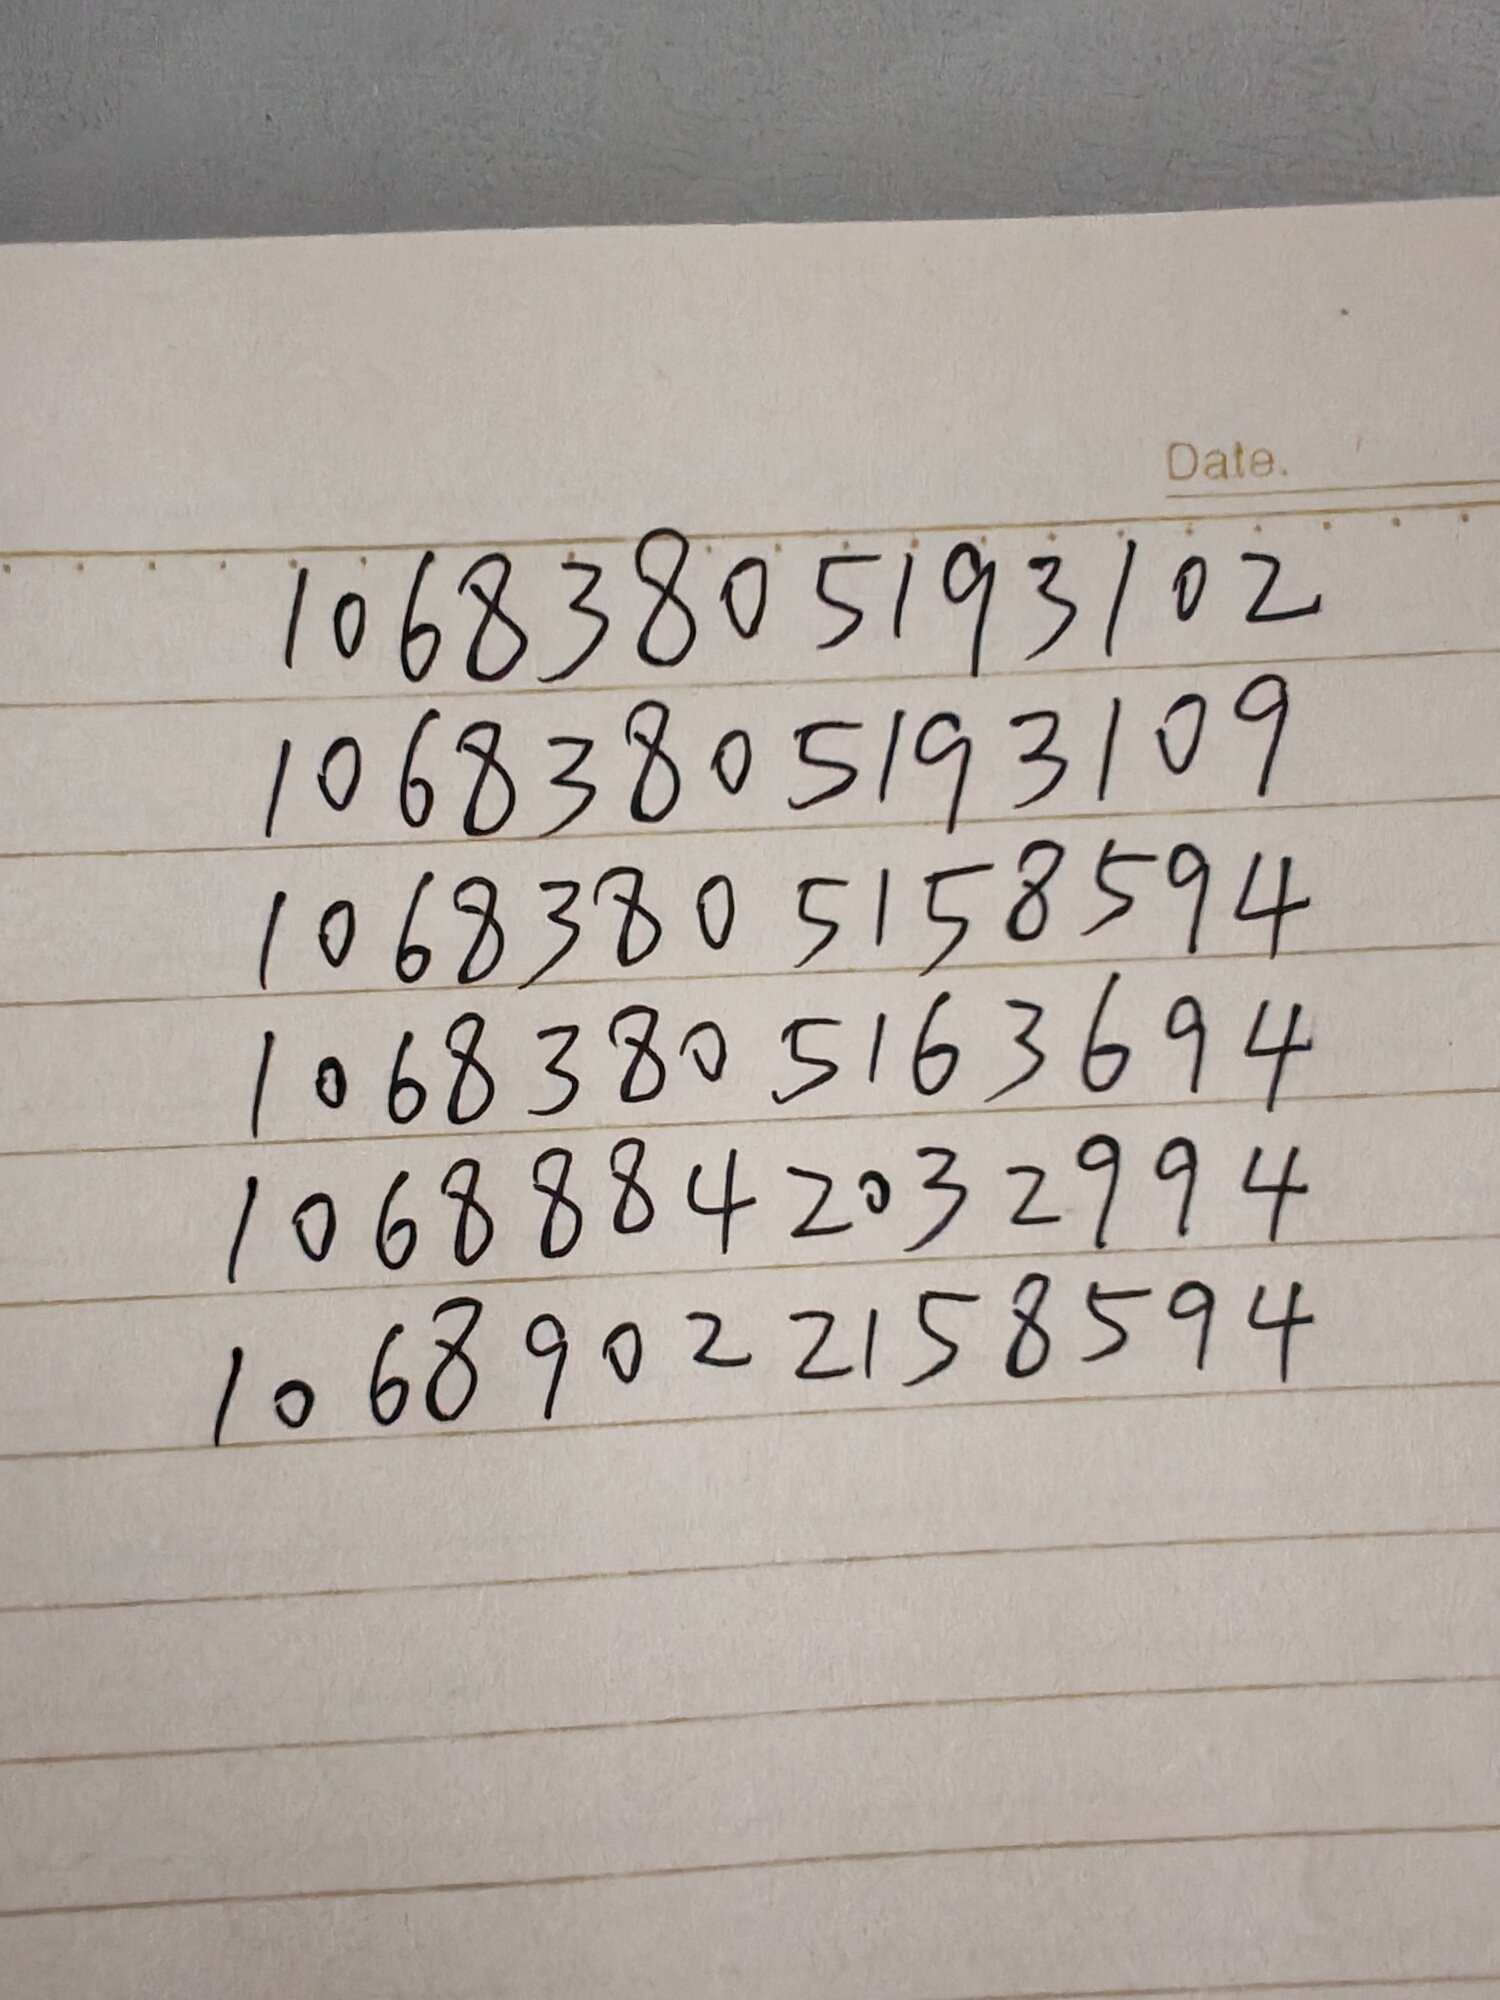 Date.
10683805193102
10683805193109
10683805158594
10683805163694
10688842032994
10689022158594